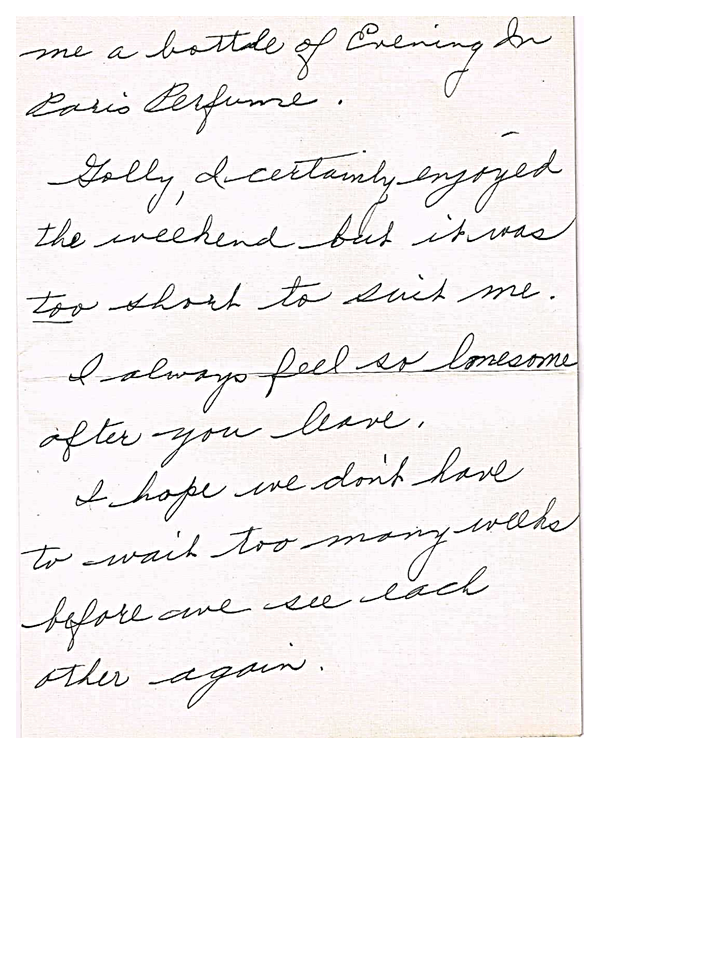 me a bottle of Evening In
Paris Perfume.
Golly, I certainly enjoyed
the weekend but it was
too short to suit me.
I always feel so lonesome
after you leave.
I hope we don't have
to wait too many weeks
before we see each
other again.